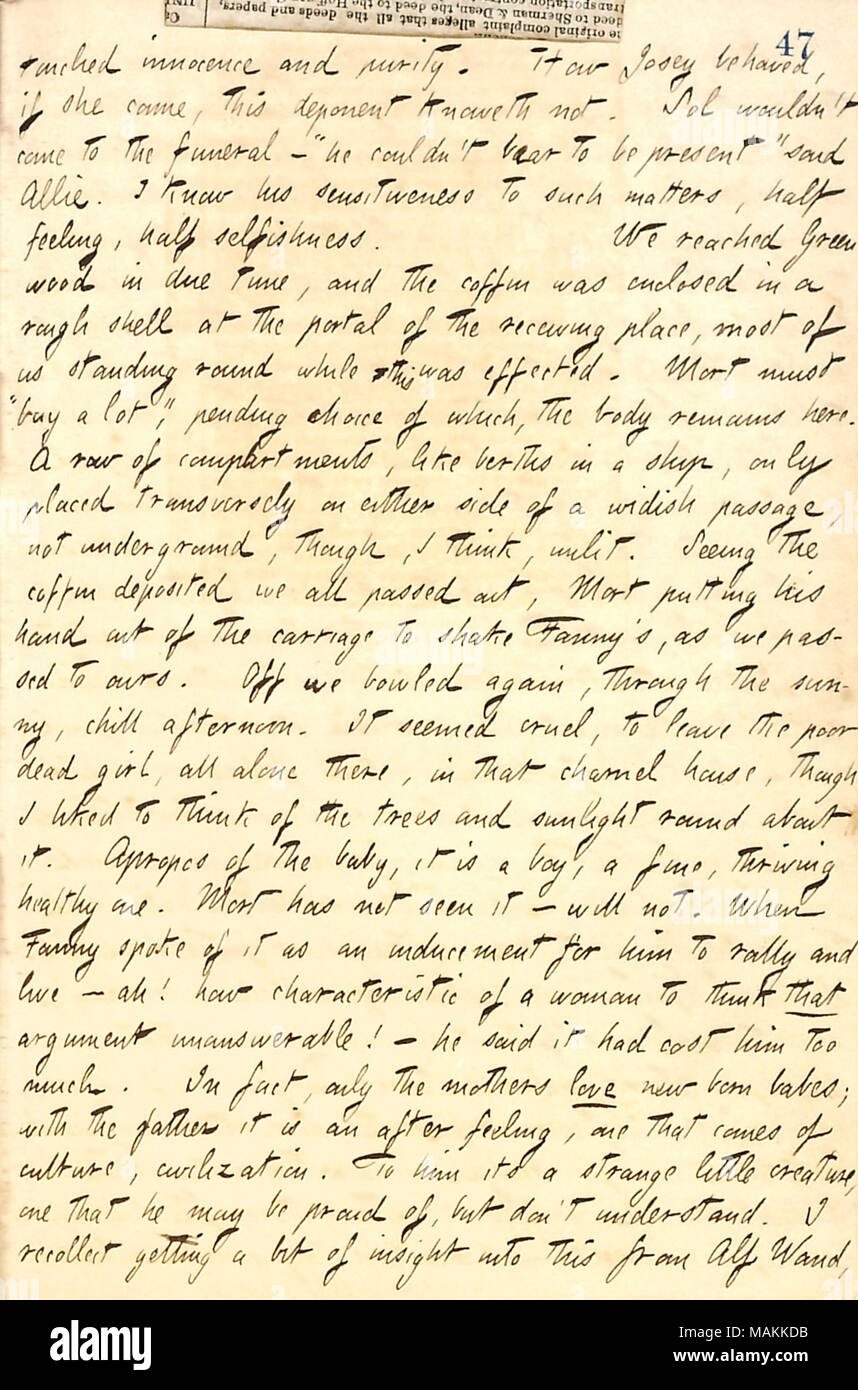 47
ne original complaint alleges that all the deeds and papers,
touched innocence and purity. How Josey behaved,
if she came, this deponent knoweth not. Sol wouldn't
come to the funeral — "he couldn't bear to be present" said
Allie. I know his sensitiveness to such matters, half
feeling, half selfishness. We reached Green
wood in due time, and the coffin was enclosed in a
rough shell at the portal of the receiving place, most of
us standing round while this was effected. Mort must
"buy a lot," pending choice of which, the body remains here.
A row of compartments, like berths in a ship, only
placed transversely on either side of a widish passage,
not underground, though, I think, unlit. Seeing the
coffin deposited we all passed out, Mort putting his
hand out of the carriage to shake Fanny's, as we pas-
sed to ours. Off we bowled again, through the sun-
ny, chill afternoon. It seemed cruel, to leave the poor
dead girl, all alone there, in that charnel house, though
I liked to think of the trees and sunlight round about
it. Apropos of the baby, it is a boy, a fine, thriving
healthy one. Mort has not seen it — will not. When
Fanny spoke of it as an inducement for him to rally and
live — ah! how characteristic of a woman to think that
argument unanswerable! — he said it had cost him too
much. In fact, only the mothers love new born babes;
with the father it is an after feeling, one that comes of
culture, civilization. To him its a strange little creature,
one that he may be proud of, but don't understand. I
recollect getting a bit of insight into this from Alf Waud,
alamy
Image ID: MAKKDB
www.alamy.com